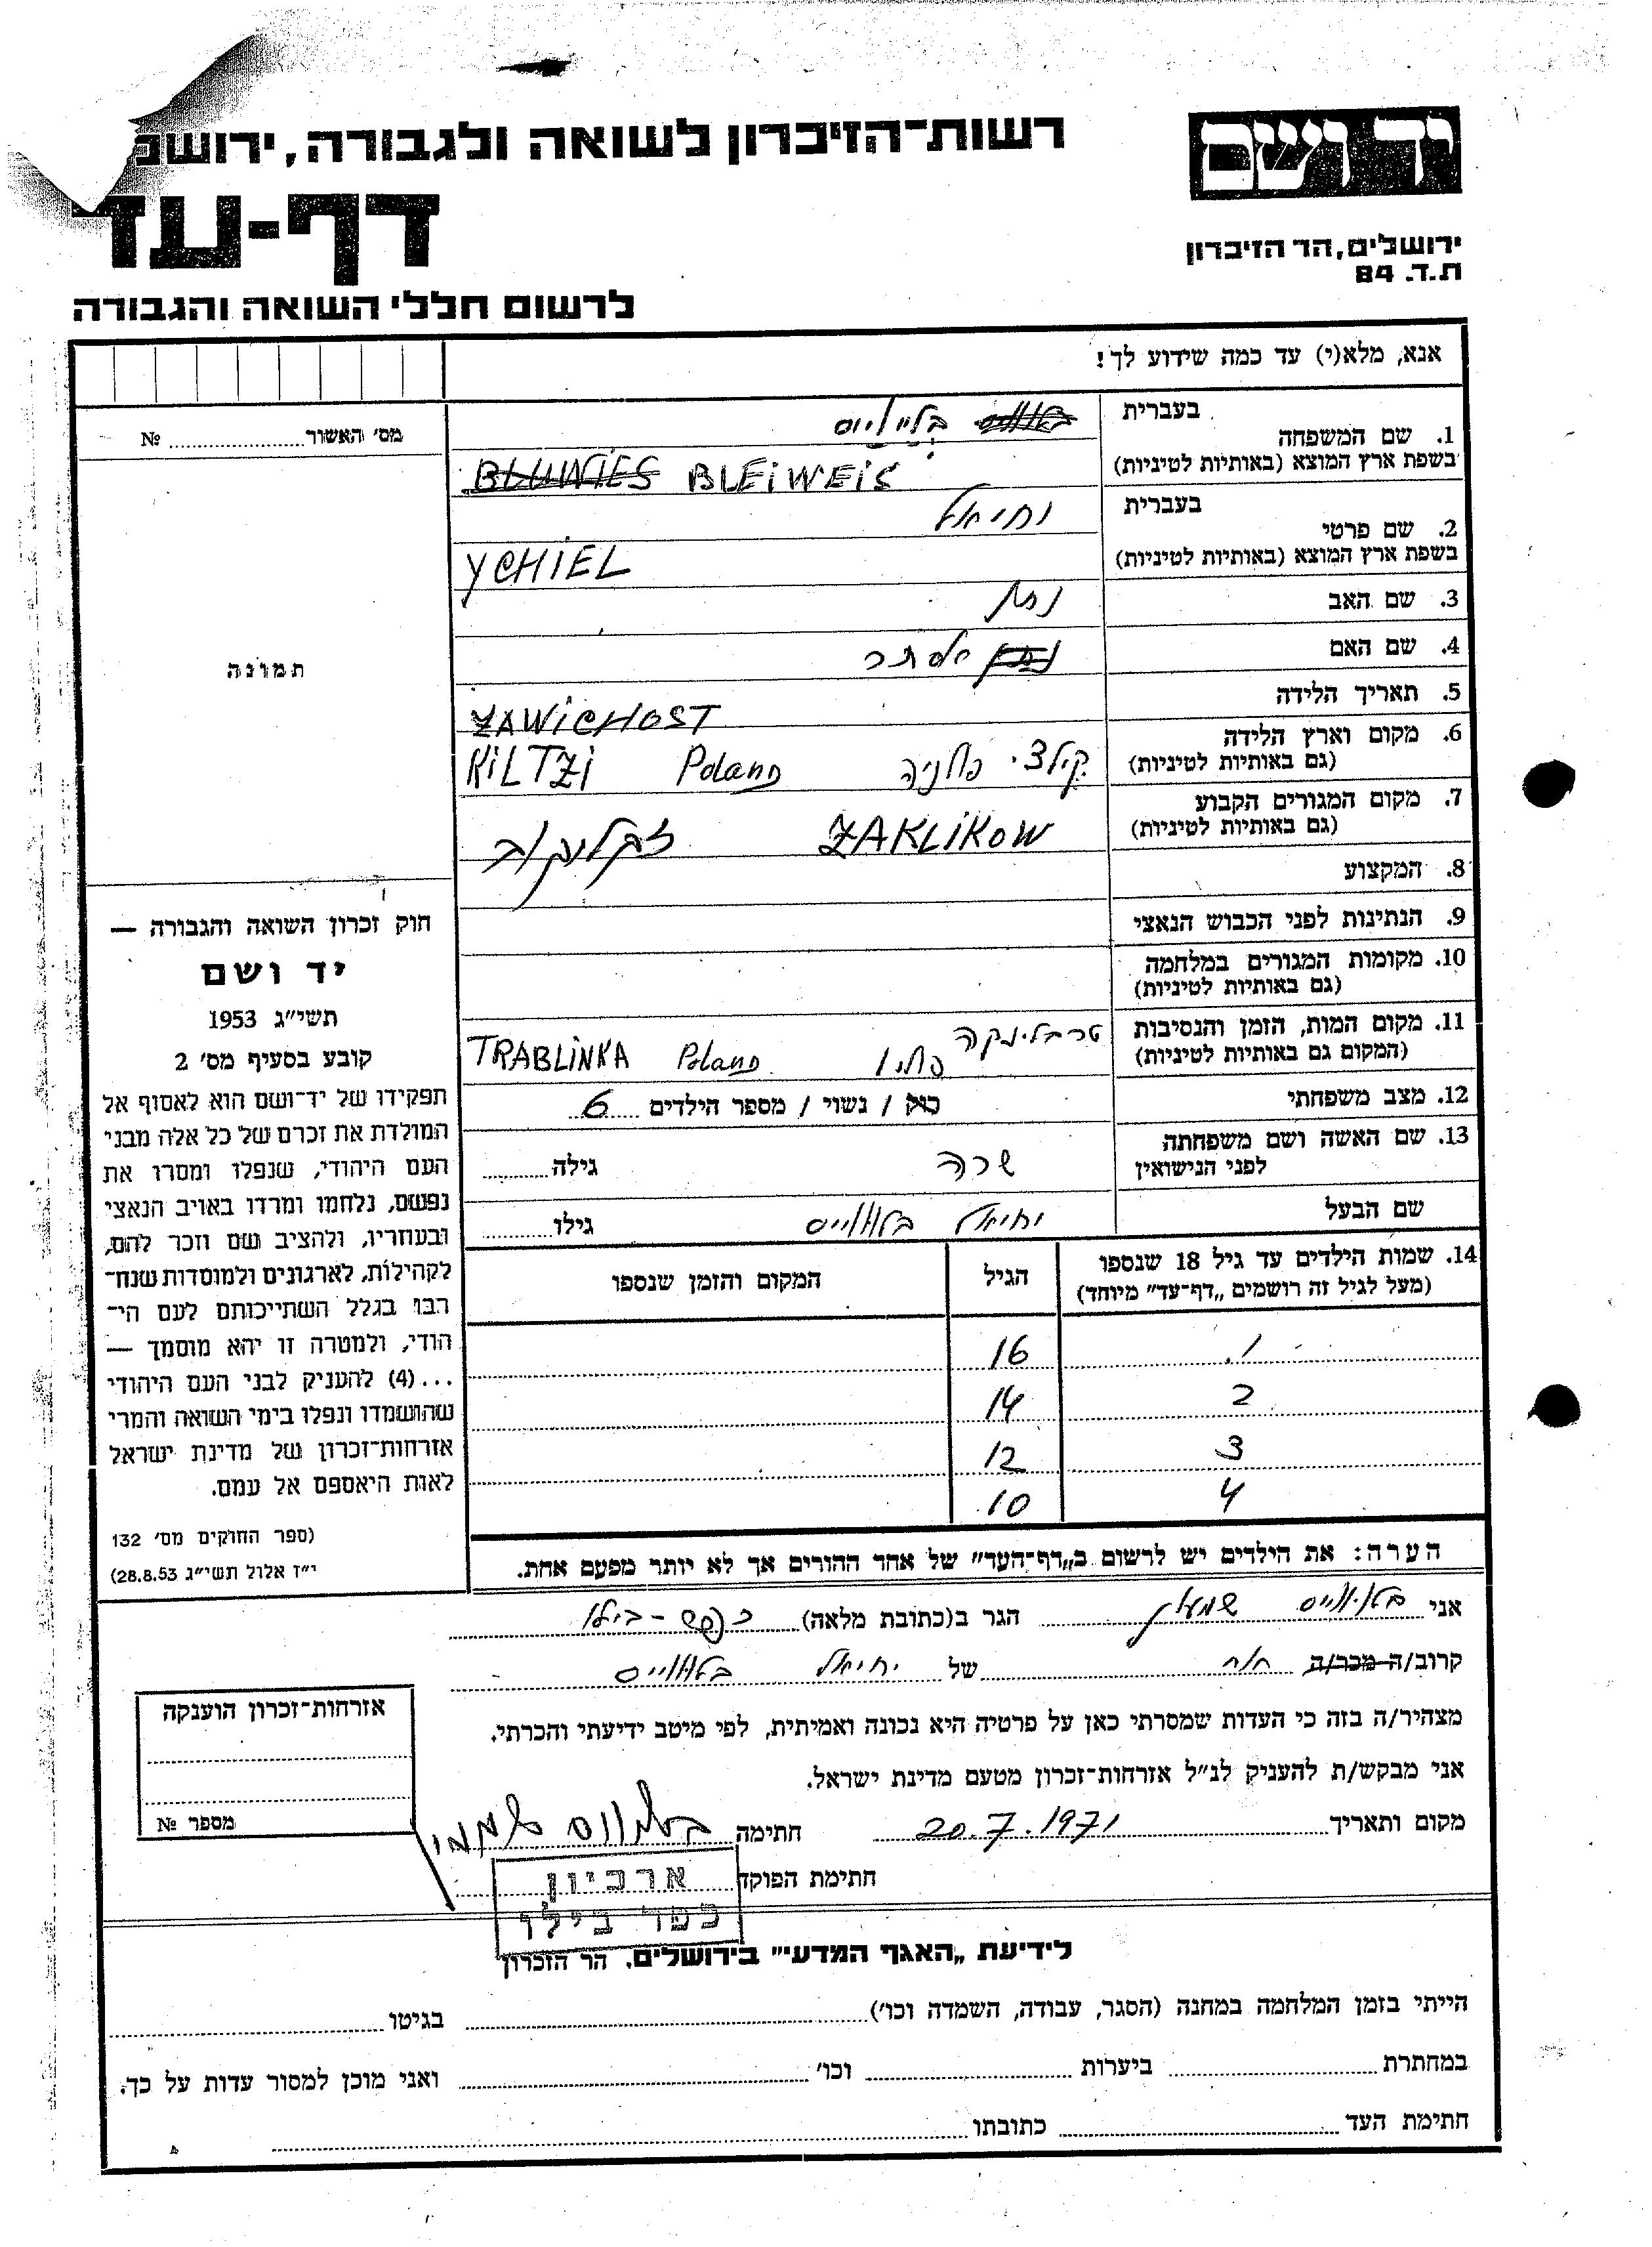 יד ושם
רשות־הזיכרון לשואה ולגבורה, ירושל
דף-עד
ירושלים, הר הזיכרון
ת.ד. 84
לרשום חללי השואה והגבורה
אנא, מלא(י) עד כמה שידוע לך!
מס׳ האשור № 
תמונה
חוק זכרון השואה והגבורה —
יד ושם
תשי״ג 1953
קובע בסעיף מס׳ 2
תפקידו של יד־ושם הוא לאסוף אל
המולדת את זכרם של כל אלה מבני
העם היהודי, שנפלו ומסרו את
נפשם, נלחמו ומרדו באויב הנאצי
ובעוזריו, ולהציב שם וזכר להם,
לקהילות, לארגונים ולמוסדות שנח־
רבו בגלל השתייכותם לעם הי־
הודי, ולמטרה זו יהא מוסמך —
...(4) להעניק לבני העם היהודי
שהושמדו ונפלו בימי השואה והמרי
אזרחות־זכרון של מדינת ישראל
לאות היאספם אל עמם.
(ספר החוקים מס׳ 132
י״ז אלול תשי״ג 28.8.53)
בעברית בלייווייס
1. שם המשפחה
בשפת ארץ המוצא (באותיות לטיניות) BLUWIES BLEiWEiS
בעברית יחיאל
2. שם פרטי
בשפת ארץ המוצא (באותיות לטיניות) YCHiEL
3. שם האב נתן
4. שם האם נתן אסתר
5. תאריך הלידה
ZAWiCHOST
6. מקום וארץ הלידה
(גם באותיות לטיניות) קילצי פולניה Poland KiLTZi
7. מקום המגורים הקבוע
(גם באותיות לטיניות) ZAKLiKOW זקליקוב
8. המקצוע
9. הנתינות לפני הכבוש הנאצי
10. מקומות המגורים במלחמה
(גם באותיות לטיניות)
11. מקום המות, הזמן והנסיבות טרבלינקה
(המקום גם באותיות לטיניות) פולין Poland TRABLiNKA
12. מצב משפחתי רווק / נשוי / מספר הילדים 6
13. שם האשה ושם משפחתה
לפני הנישואין שרה גילה
שם הבעל יחיאל בלווייס גילו
14. שמות הילדים עד גיל 18 שנספו
(מעל לגיל זה רושמים „דף־עד״ מיוחד)
הגיל
המקום והזמן שנספו
1. 16
2 14
3 12
4 10
הערה: את הילדים יש לרשום ב„דף־העד״ של אחד ההורים אך לא יותר מפעם אחת.
אני בלווייס שמעון הגר ב(כתובת מלאה) כפר-בילו
קרוב/ה מכר/ה אח של יחיאל בלווייס
מצהיר/ה בזה כי העדות שמסרתי כאן על פרטיה היא נכונה ואמיתית, לפי מיטב ידיעתי והכרתי.
אני מבקש/ת להעניק לנ״ל אזרחות־זכרון מטעם מדינת ישראל.
מקום ותאריך 20.7.1971 חתימה
חתימת הפוקד
ארכיון
כפר בילו
אזרחות־זכרון הוענקה
מספר №
לידיעת „האגף המדעי״ בירושלים. הר הזכרון
הייתי בזמן המלחמה במחנה (הסגר, עבודה, השמדה וכו׳) בגיטו
במחתרת ביערות וכו׳ ואני מוכן למסור עדות על כך.
חתימת העד כתובתו